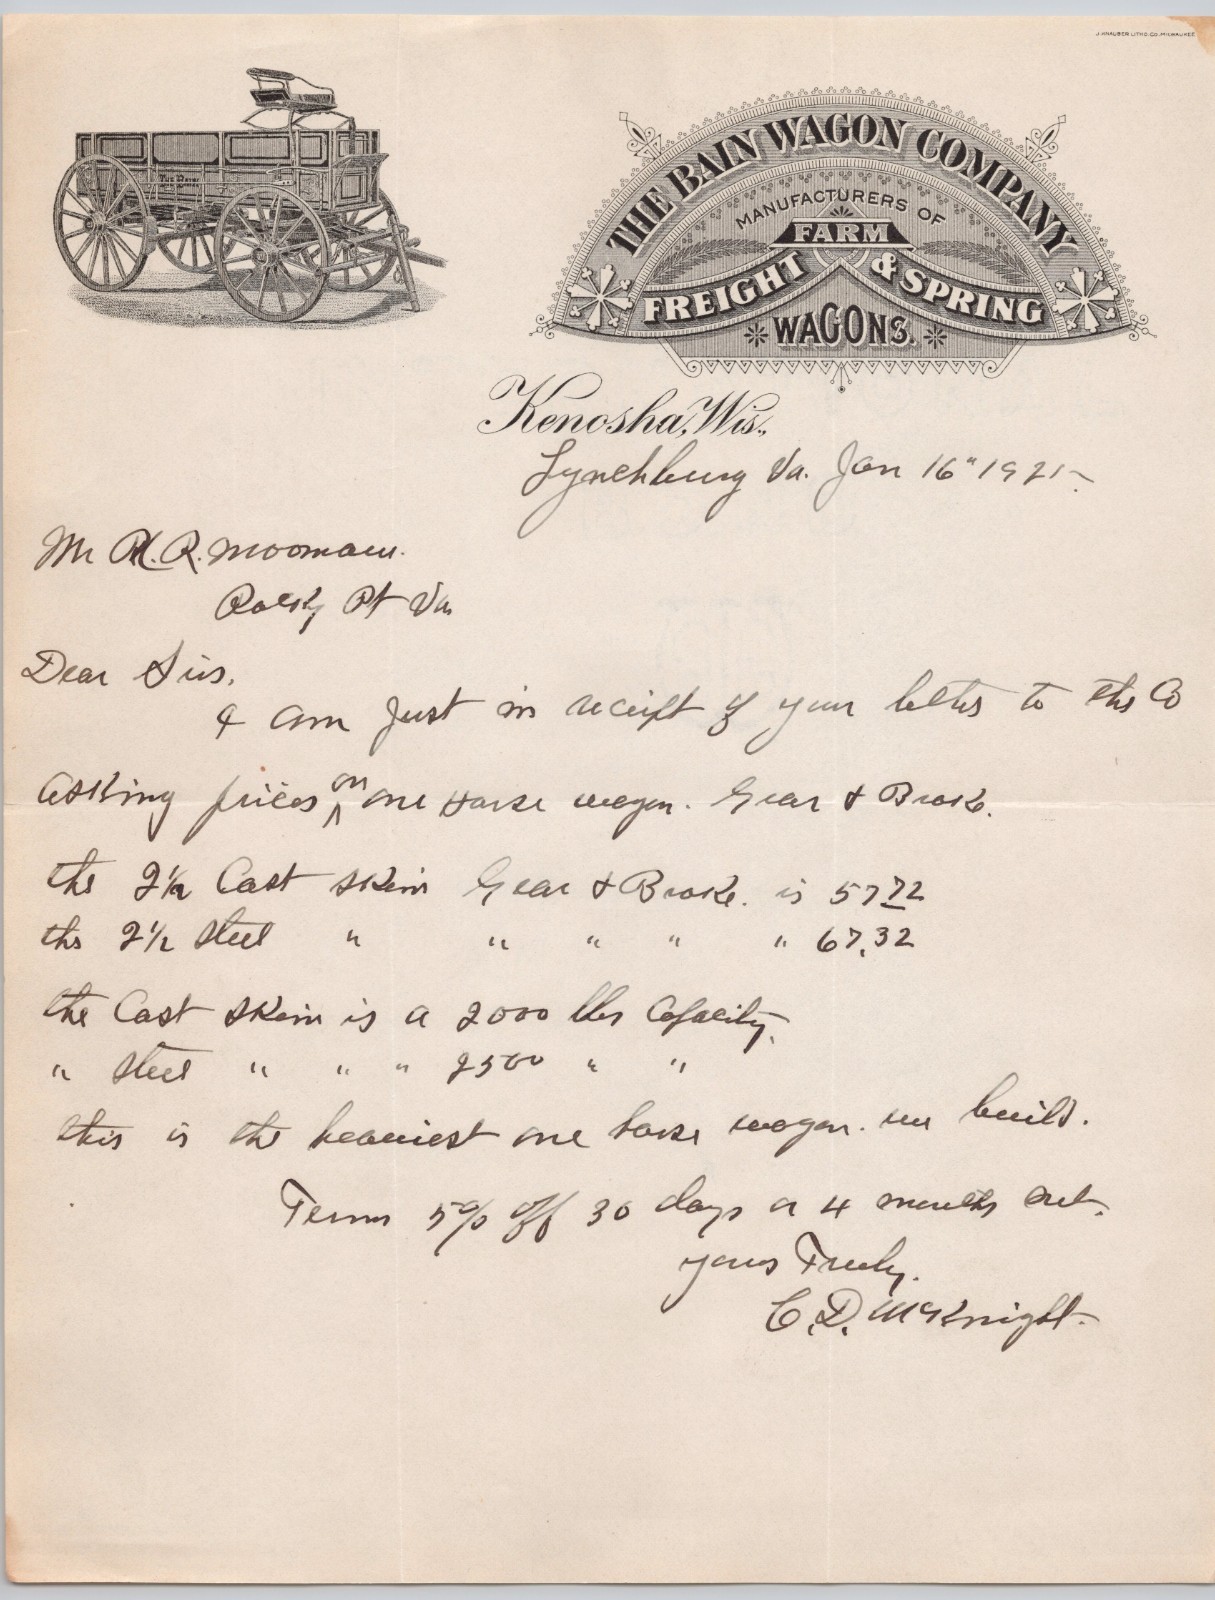 J. KNAUBER LITHO. CO. MILWAUKEE
THE BAIN WAGON COMPANY
MANUFACTURERS OF
FARM
FREIGHT & SPRING
WAGONS.
Kenosha, Wis.,
Lynchburg Va. Jan 16" 1921
Mr R. R. Moomaw.
Rocky Pt Va
Dear Sir.
I am just in receipt of your letter to the Co
asking prices on one Horse wagon. Gear & Brake.
the 2½ Cast skein Gear & Brake. is 57 72
the 2½ steel " " " " " 67.32
the Cast skein is a 2000 lbs Capacity.
" steel " " " 2500 " "
this is the heaviest one horse wagon. we build.
Terms 5% off 30 days or 4 months net.
yours Truly.
C. D. McKnight.